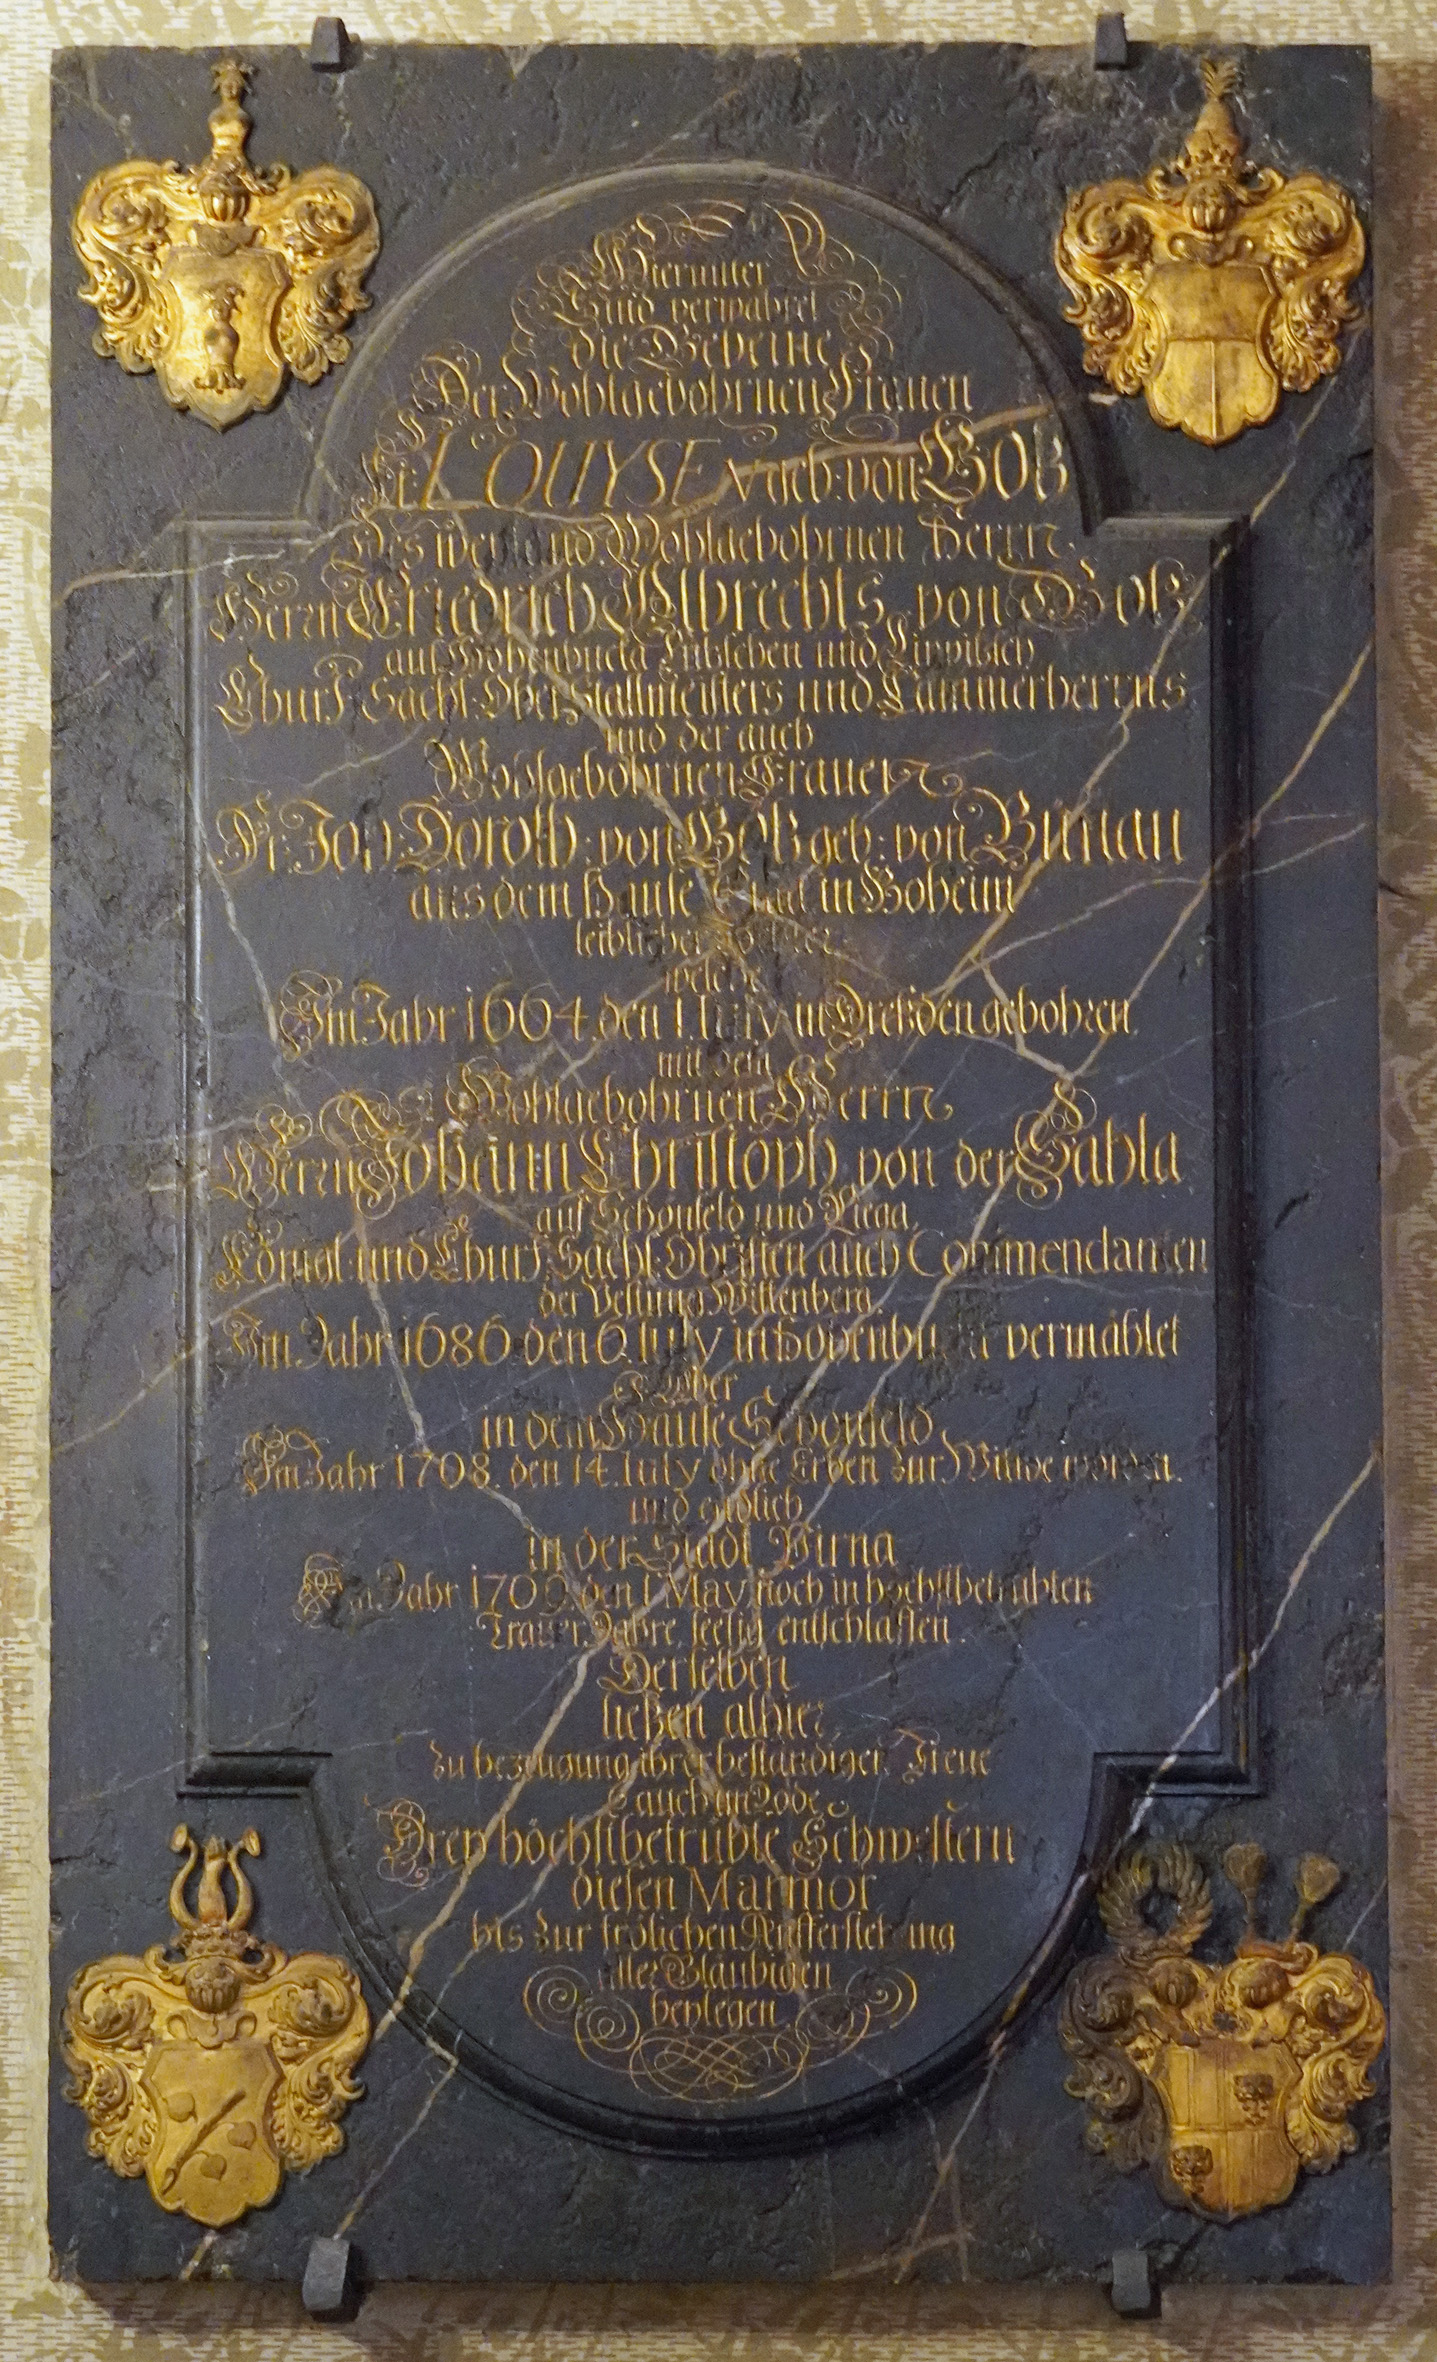 Hierunter
Sind verwahret
die Gebeine
Der Wohlgebohrnen Frauen
Fr. LOUYSE, geb: von Götz
Des weyland Wohlgebohrnen Herrn,
Herrn Friedrich Albrechts, von Götz
auf Hohenbucka
Churf. Sächß. Ober Stallmeisters und Cammerherrns
und der auch
Wohlgebohrnen Frauen
Fr. Joh: Doroth: von Götz geb: von Bünau
aus dem Hause in Böheim
leiblicher
welche
Im Jahr 1664. den 1. July in Dreßden gebohren,
mit dem
Wohlgebohrnen Herrn
Herrn Johann Christoph, von der Sahla
auf Schönfeld und
Königl: und Churf. Sächß: Obristen auch Commendanten
der Vestung Wittenberg.
Im Jahr 1686 den 6. July in Hohenbucka vermählet
Aber
in dem Hause Schönfeld
Im Jahr 1708. den 14. July ohne Erben zur Wittwe worden.
und endlich
in der Stadt Pirna
Im Jahr 1709. den 1. May, noch in höchstbetrübten
Trauer Jahre, seelig entschlaffen.
Derselben
ließen alhier,
zu bezeugung ihrer beständigen Treue
auch im Tode
Drey höchstbetrübte Schwestern
diesen Marmor
bis zur frölichen Aufferstehung
aller Gläubigen
beylegen.